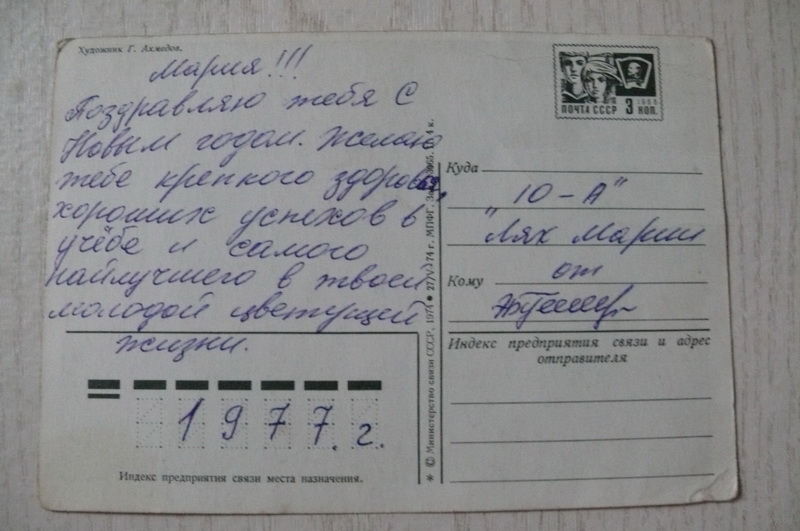 Художник Г. Ахмедов.
Мария!!!
Поздравляю тебя с
Новым годом. Желаю
тебе крепкого здоровья,
хороших успехов в
учёбе и самого
наилучшего в твоей
молодой цветущей
жизни.
1977.г.
Индекс предприятия связи места назначения.
* © Министерство связи СССР, 1974 ● 27/V 74 г. МПФГ. 4 к.
1966
ПОЧТА СССР 3 КОП.
Куда
10-А"
"Лях Марии
Кому
от
Индекс предприятия связи и адрес
отправителя